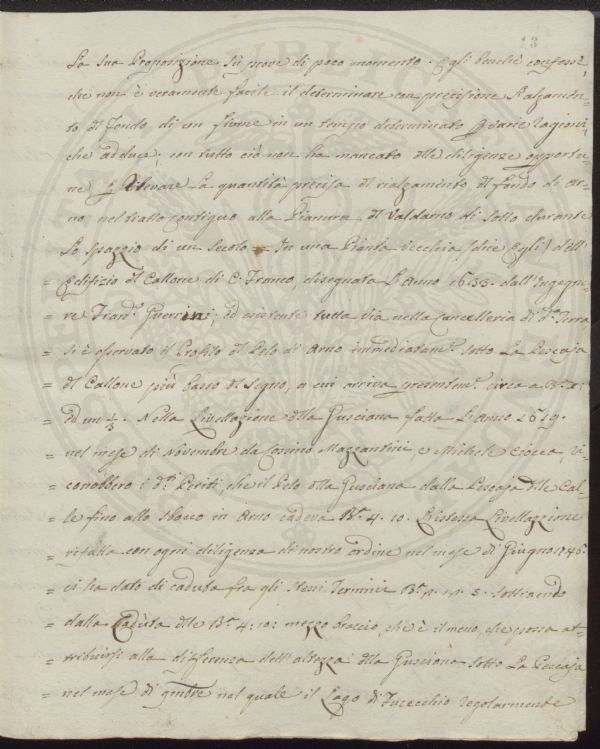 13
La sua Proporizione si move di poco momento. Egli benchè confessi,
che non è veramente facile il determinare con precisione l'alzamen-
to del fondo di un fiume in un tempo determinato p varie ragioni,
che adduce; con tutto ciò non ha mancato delle diligenze opportu-
ne p rilevare la quantità precisa del rialzamento del fondo di Ar-
no nel tratto contiguo alla Pianura del Valdarno di sotto durante
lo spazzio di un secolo = In una Pianta vecchia (dice Egli) dell'
= Edifizio del Callone di C. Franco, disegnata l'Anno 1633. dall'Ingegne-
= re Fran.º Guerrini; ed esistente tutta via nella Cancelleria di d.ª Terra
= si è osservato il Profilo del Pelo di Arno immediatam.e sotto la Pescaja
= del Callone più basso del segno, a cui arriva presentem.e circa a B.a 2:
= ed un 1/3. Nella Livellazione della Gusciana fatta l'Anno 1679.
= nel mese di Novembre da Cosimo Mazzantini, e Michele Ciocca, ri-
= conobbero i d.i Periti, che il Pelo della Gusciana dalla Pescaja delle Cal-
= le fino allo sbocco in Arno cadeva B.a 4. 10. L'istessa Livellazione
= rifatta con ogni diligenza di nostro ordine nel mese di Giugno 1746.
= ci ha dato di caduta fra gli stessi Termini B.a Sottraendo
= dalla Caduta delle B.a 4: 10: mezzo braccio, che è il meno, che possa at-
= tribuirsi alla differenza dell'altezza della Gusciana sotto la Pescaja
= nel mese di 9mbre nel quale il Lago di Fucecchio regolarmente